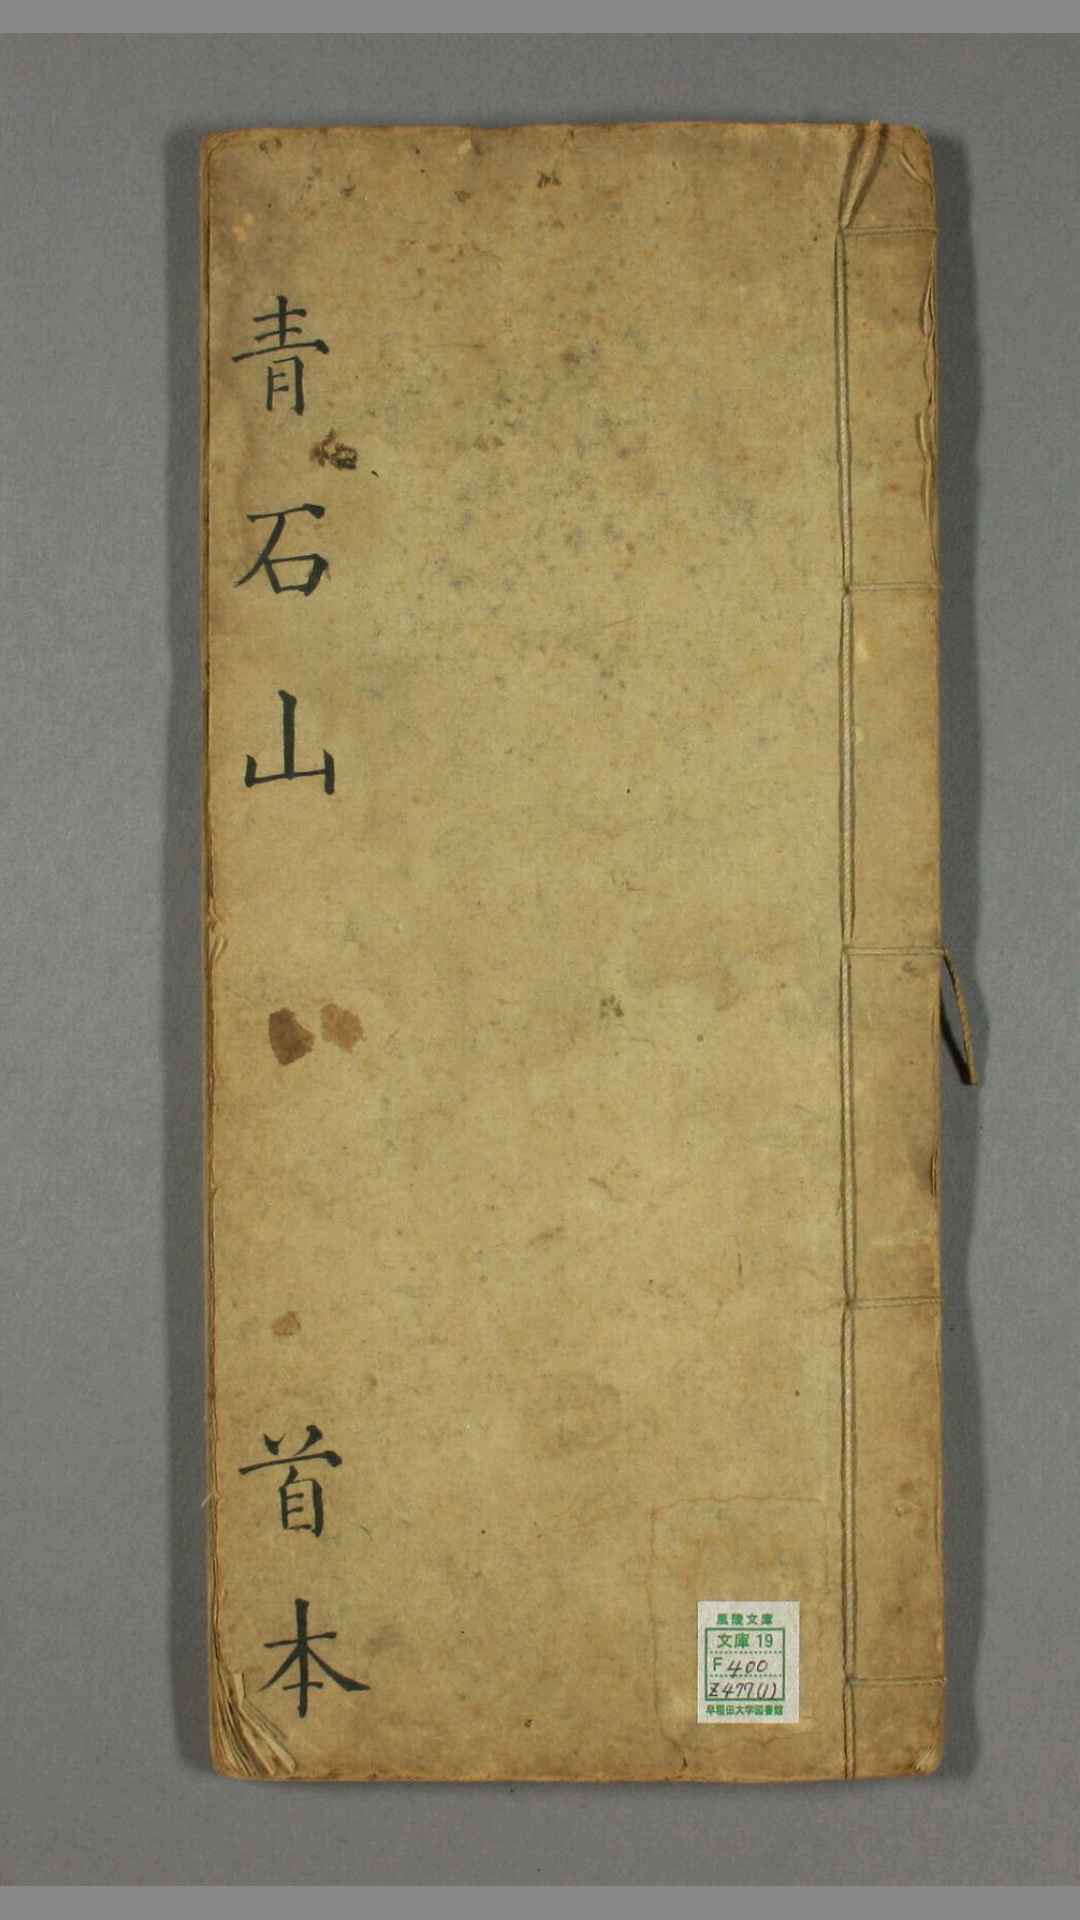 青石山
首本
風陵文庫
文庫 19
F 400
Z477(1)
早稲田大学図書館